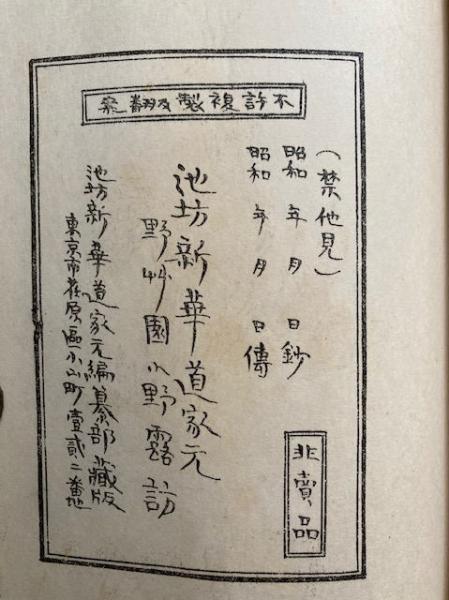 不許複製及翻案
(禁他見)
昭和 年 月 日鈔
昭和 年 月 日傳
非賣品
池坊新華道家元
野艸園小野露訪
池坊新華道家元編纂部藏版
東京市荏原區小山町壹貳二番地